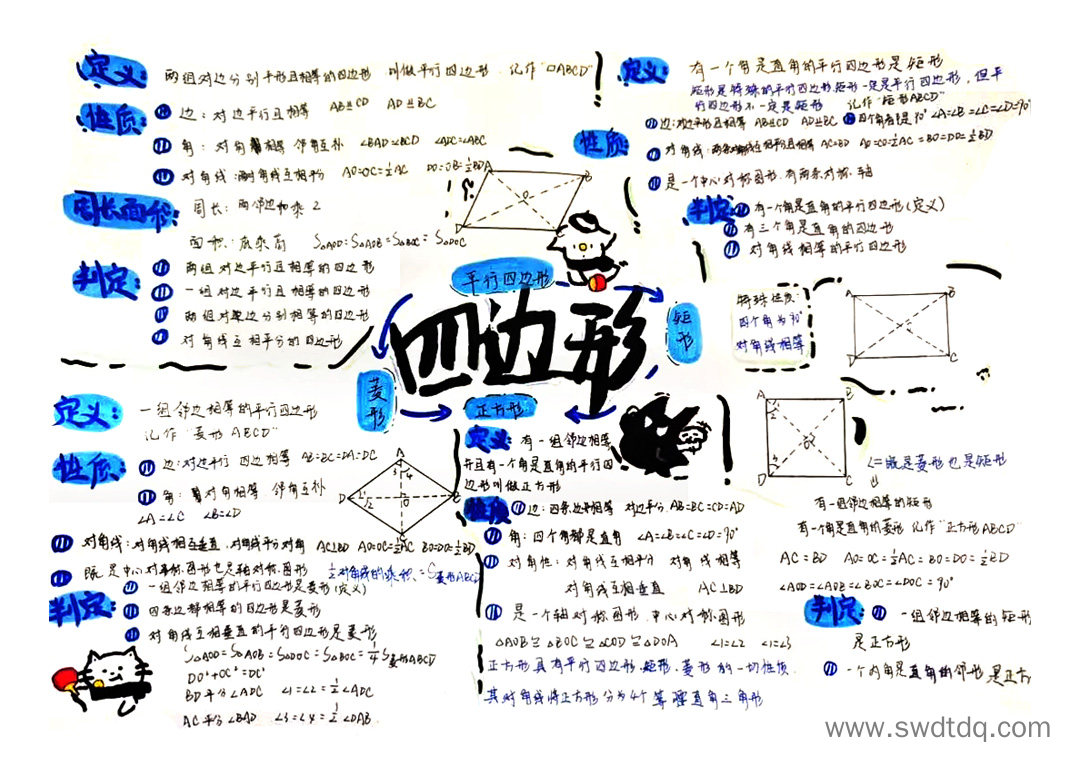 定义:
两组对边分别平行且相等的四边形 叫做平行四边形. 记作"▱ABCD"
性质:
边: 对边平行且相等 AB≌CD AD≌BC
角: 对角相等 邻角互补 ∠BAD=∠BCD ∠ADC=∠ABC
对角线: 对角线互相平分 AO=OC=½AC DO=OB=½BD
周长面积:
周长: 两邻边和乘2
面积: 底乘高 S△AOD=S△AOB=S△BOC=S△DOC
判定:
两组对边平行且相等的四边形
一组对边平行且相等的四边形
两组对边分别相等的四边形
对角线互相平分的四边形
A
B
O
定义:
有一个角是直角的平行四边形是矩形
矩形是特殊的平行四边形矩形一定是平行四边形, 但平
行四边形不一定是矩形 记作"矩形ABCD"
性质:
边:对边平行且相等 AB≌CD AD≌BC 四个角都是90° ∠A=∠B=∠C=∠D=90°
对角线: 互相平分且相等 AC=BD AO=CO=½AC=BO=DO=½BD
是一个中心对称图形, 有两条对称轴
判定:
有一个角是直角的平行四边形(定义)
有三个角是直角的四边形
对角线相等的平行四边形
特殊性质:
四个角为90°
对角线相等
A
B
D
C
平行四边形
四边形
矩形
菱形
正方形
定义:
一组邻边相等的平行四边形
记作"菱形ABCD"
性质:
边:对边平行 四边相等 AB=BC=DA=DC
角: 对角相等 邻角互补
∠A=∠C ∠B=∠D
对角线:对角线相互垂直, 对角线平分对角 AC⊥BD AO=OC=½AC BO=DO=½BD
既是中心对称图形也是轴对称图形 ½对角线的乘积=S菱形ABCD
判定:
一组邻边相等的平行四边形是菱形(定义)
四条边都相等的四边形是菱形
对角线互相垂直的平行四边形是菱形
S△AOD=S△AOB=S△DOC=S△BOC=¼S菱形ABCD
DO²+OC²=DC²
BD平分∠ADC ∠1=∠2=½∠ADC
AC平分∠BAD ∠3=∠4=½∠DAB
A
3
4
D
1
2
O
定义:
有一组邻边相等
并且有一个角是直角的平行四
边形叫做正方形
性质
边:四条边都相等 对边平分 AB=BC=CD=AD
角: 四个角都是直角 ∠A=∠B=∠C=∠D=90°
对角性: 对角线互相平分 对角线相等
对角线互相垂直 AC⊥BD
是一个轴对称图形, 中心对称图形
△AOB≌△BOC≌△COD≌△DOA ∠1=∠2 ∠1=∠3
正方形具有平行四边形, 矩形, 菱形的一切性质.
其对角线将正方形分为4个等腰直角三角形
A
B
1
2
4
D
C
既是菱形也是矩形
有一组邻边相等的矩形
有一个角是直角的菱形 记作"正方形ABCD"
AC=BD AO=OC=½AC=BO=DO=½BD
∠AOD=∠AOB=∠BOC=∠DOC=90°
判定:
一组邻边相等的矩形
是正方形
一个内角是直角的
是正方
www.swdtdq.com